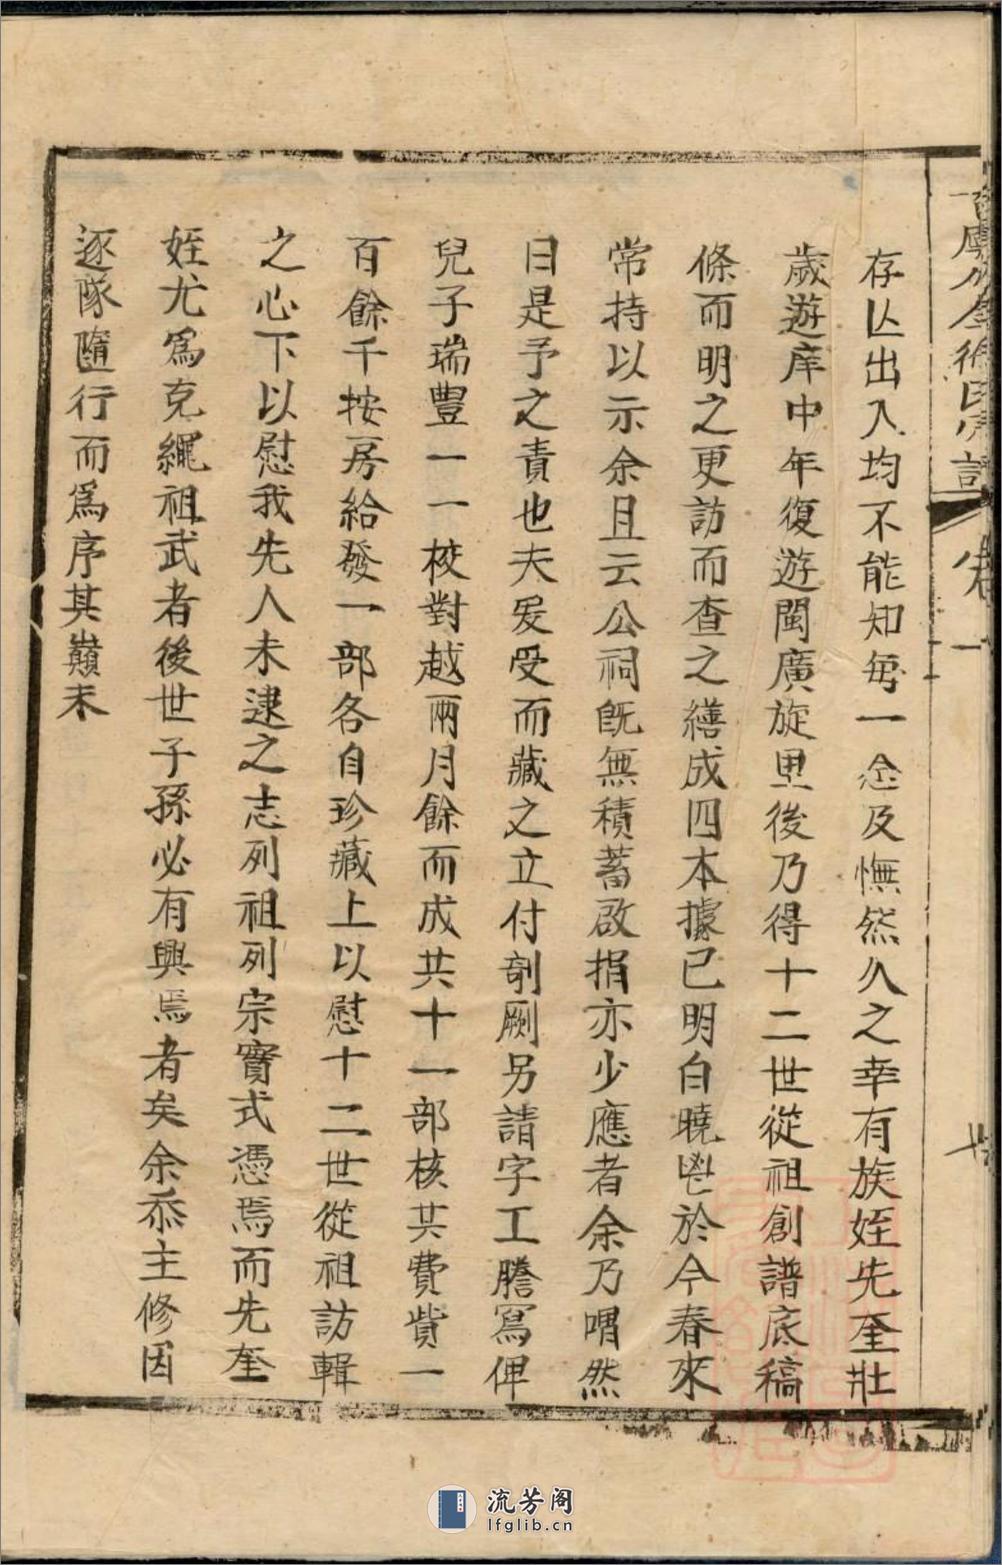 存亾出入均不能知每一念及憮然久之幸有族姪先奎壯
歲遊庠中年復遊閩廣旋里後乃得十二世從祖創譜底稿
條而明之更訪而查之繕成四本據已明白曉鬯於今春來
常持以示余且云公祠旣無積蓄啟捐亦少應者余乃喟然
曰是予之責也夫爰受而藏之立付剞劂另請字工謄寫俾
兒子瑞豐一一校對越兩月餘而成共十一部核其費貲一
百餘千按房給發一部各自珍藏上以慰十二世從祖訪輯
之心下以慰我先人未逮之志列祖列宗寶式憑焉而先奎
姪尤爲克繩祖武者後世子孫必有興焉者矣余忝主修因
逐隊隨行而爲序其巔末
卷一
流芳阁
lfglib.cn